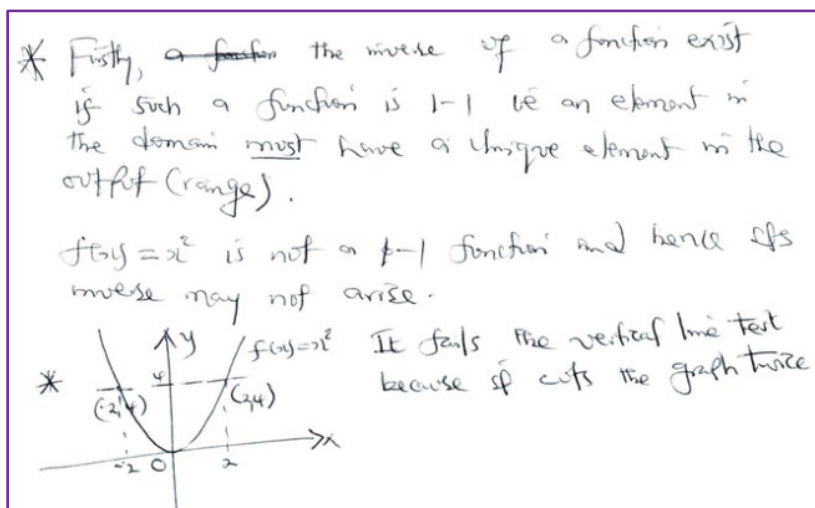 * Firstly, a function the inverse of a function exist
if such a function is 1-1 ie an element in
the domain must have a unique element in the
output (range).
f(x) = x² is not a 1-1 function and hence its
inverse may not arise.
y f(x)=x² It fails the vertical line test
* (-2,4) 4 (2,4) because it cuts the graph twice
-2 0 2 x